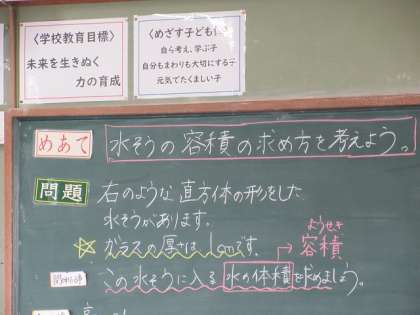 〈学校教育目標〉
未来を生きぬく
力の育成
〈めざす子ども
自ら考え、学ぶ子
自分もまわりも大切にする子
元気でたくましい子
めあて
水そうの容積の求め方を考えよう。
問題
右のような直方体の形をした
水そうがあります。
☆ガラスの厚さは1cmです。
ようせき
→容積
この水そうに入る水の体積を求めましょう。